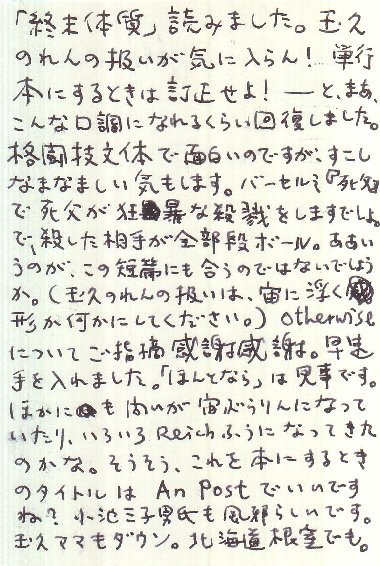 「終末体質」読みました。玉久
のれんの扱いが気に入らん！単行
本にするときは訂正せよ！――と、まあ、
こんな口調になれるくらい回復しました。
格闘技文体で面白いのですが、すこし
なまなましい気もします。バーセルミ『死父』
で死父が狂暴な殺戮をしますでしょ。
で、殺した相手が全部段ボール。ああい
うのが、この短篇にも合うのではないでしょう
か。（玉久のれんの扱いは、宙に浮く
形か何かにしてください。）otherwise
についてご指摘感謝感謝。早速
手を入れました。「ほんとなら」は見事です。
ほかにも 向いが宙ぶらりんになって
いたり、いろいろReichふうになってきた
のかな。そうそう、これを本にするとき
のタイトルは An Post でいいです
ね？小池三子男氏も風邪らしいです。
玉久ママもダウン。北海道根室でも。